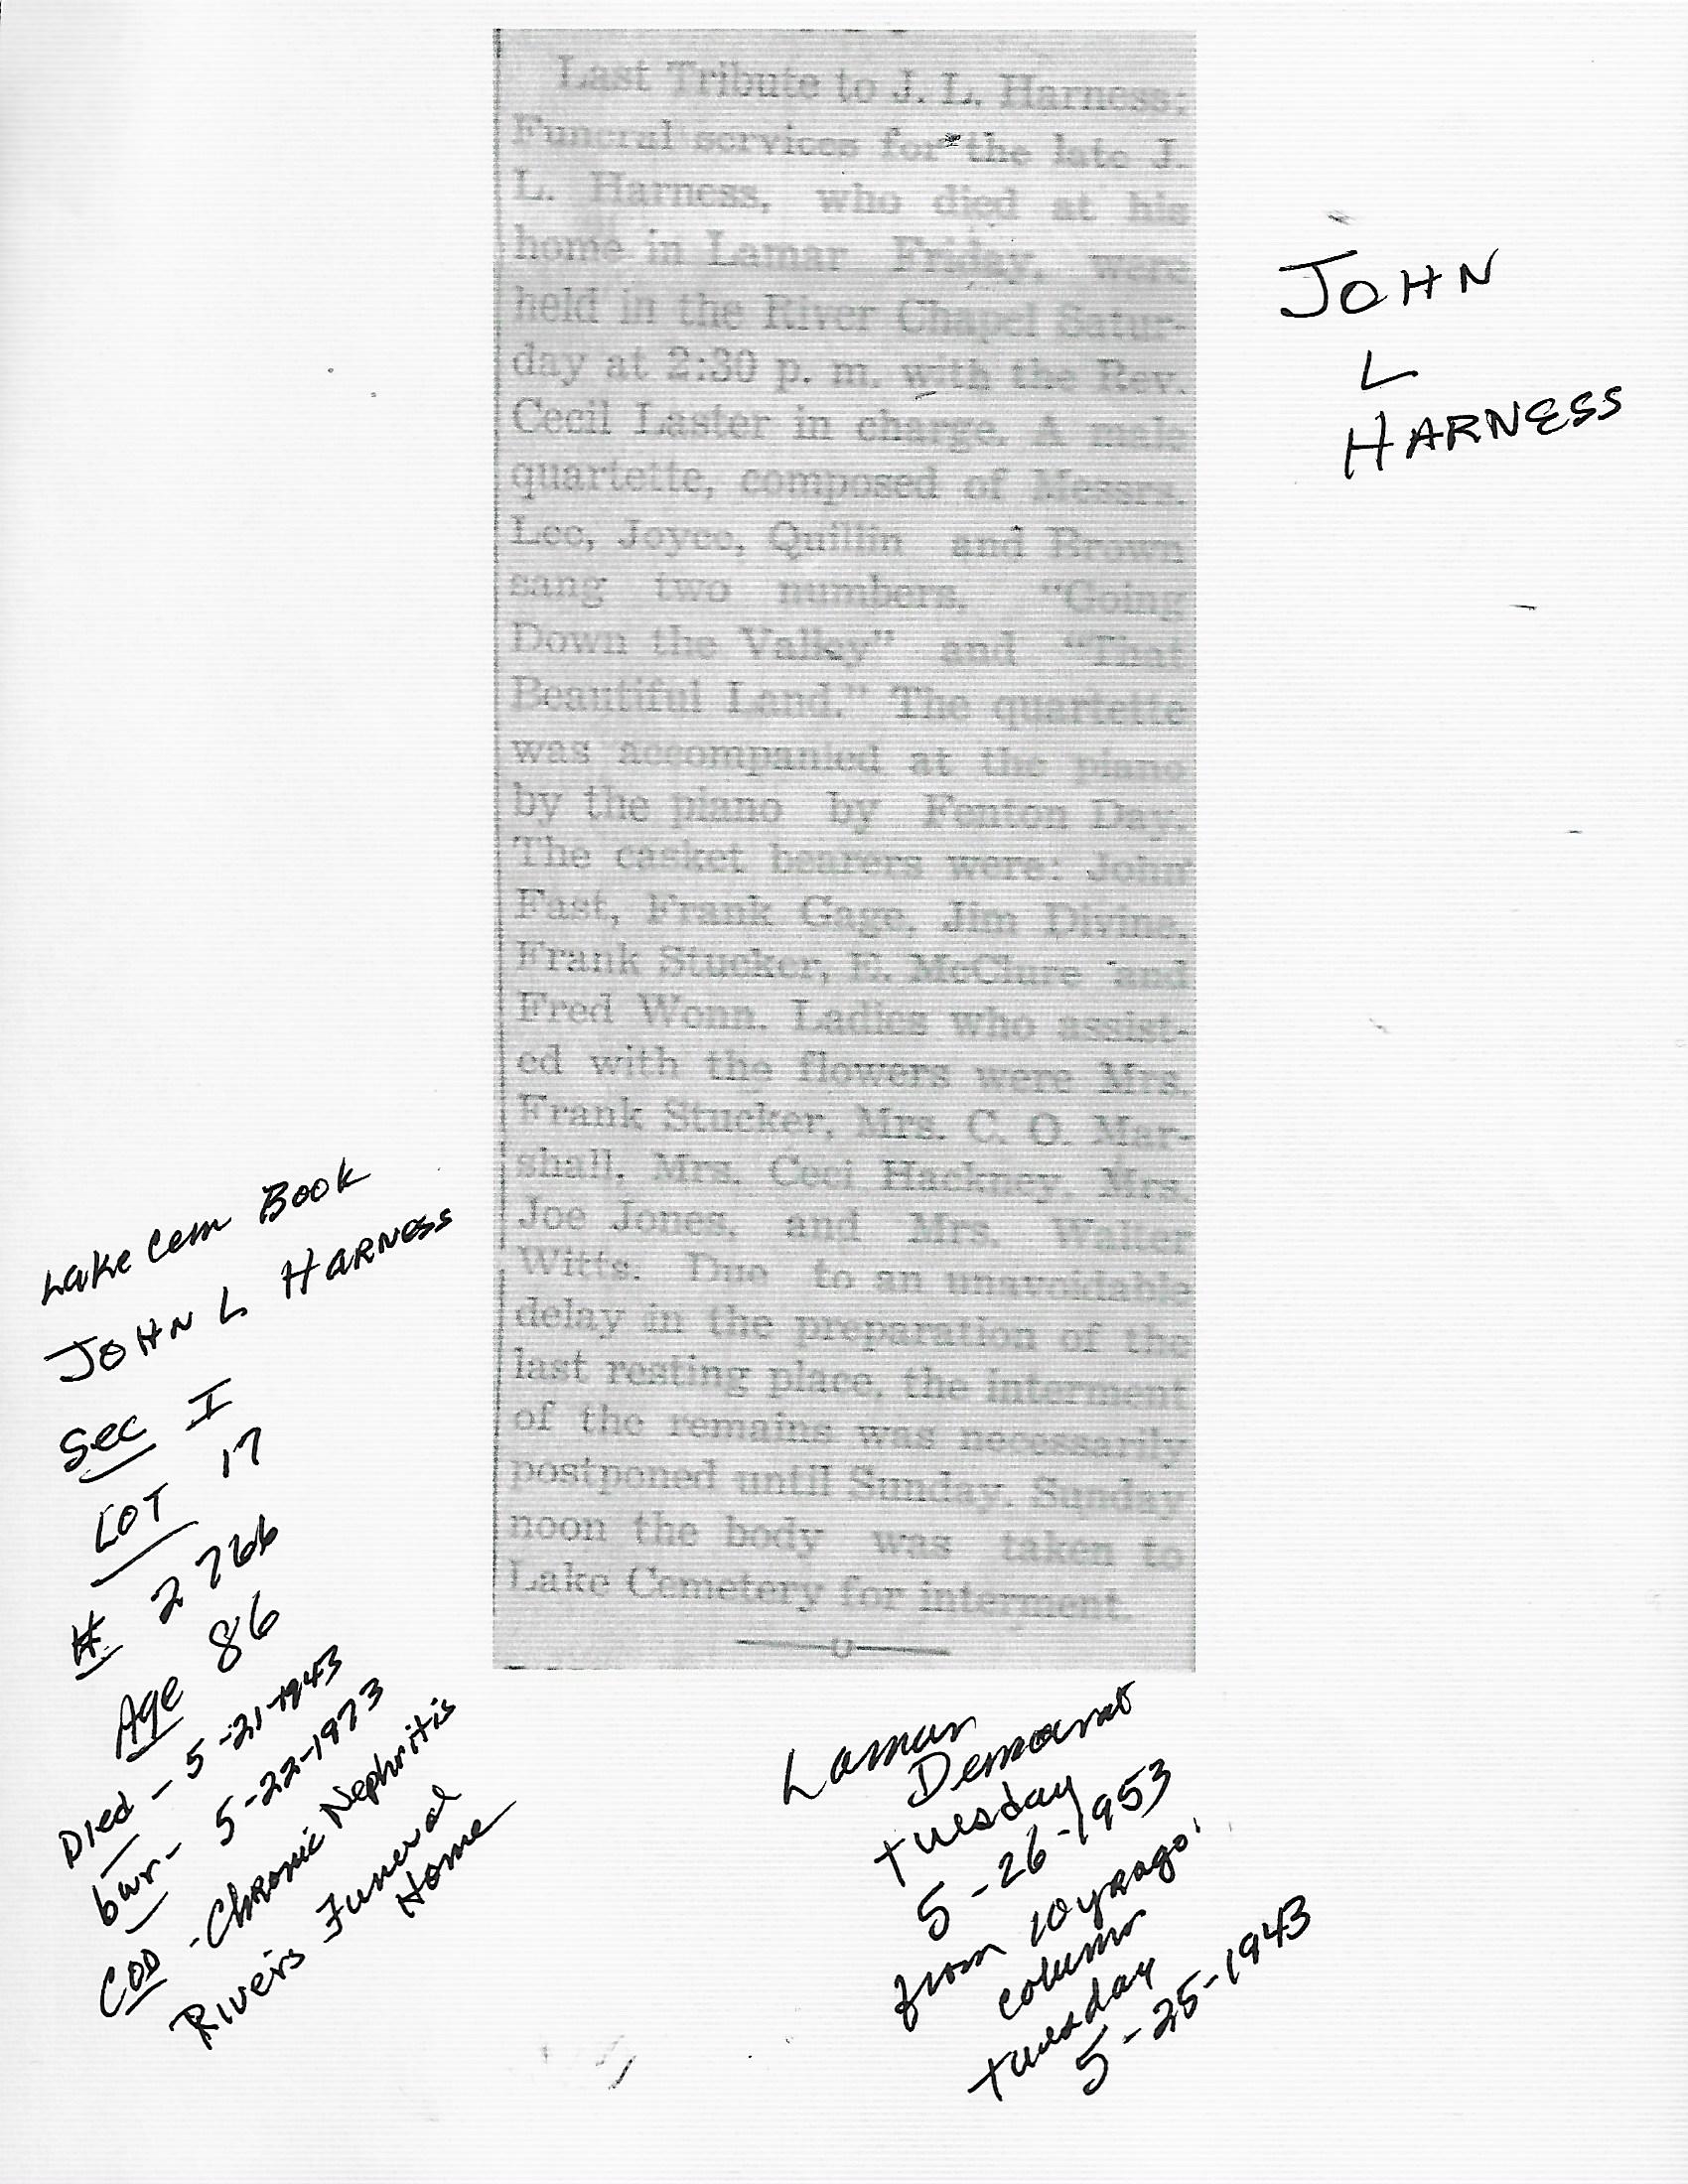 Last Tribute to J. L. Harness:
Funeral services for the late J.
L. Harness, who died at his
home in Lamar Friday, were
held in the River Chapel Satur-
day at 2:30 p. m. with the Rev.
Cecil Laster in charge. A male
quartette, composed of Messrs.
Lee, Joyce, Quillin and Brown
sang two numbers. "Going
Down the Valley" and "That
Beautiful Land." The quartette
was accompanied at the piano
by the piano by Fenton Day.
The casket bearers were: John
Fast, Frank Gage, Jim Divine,
Frank Stucker, E. McClure and
Fred Wonn. Ladies who assist-
ed with the flowers were Mrs.
Frank Stucker, Mrs. C. O. Mar-
shall, Mrs. Ceci Hackney, Mrs.
Joe Jones, and Mrs. Walter
Witts. Due to an unavoidable
delay in the preparation of the
last resting place, the interment
of the remains was necessarily
postponed until Sunday. Sunday
noon the body was taken to
Lake Cemetery for interment.
JOHN
L
HARNESS
Lake Cem Book
JOHN L HARNESS
Sec I
LOT 17
# 2766
Age 86
Died - 5-21-1943
bur - 5-22-1973
COD - Chronic Nephritis
Rivers Funeral
Home
Lamar
Democrat
tuesday
5-26-1953
from 10 yrs ago
column
tuesday
5-25-1943